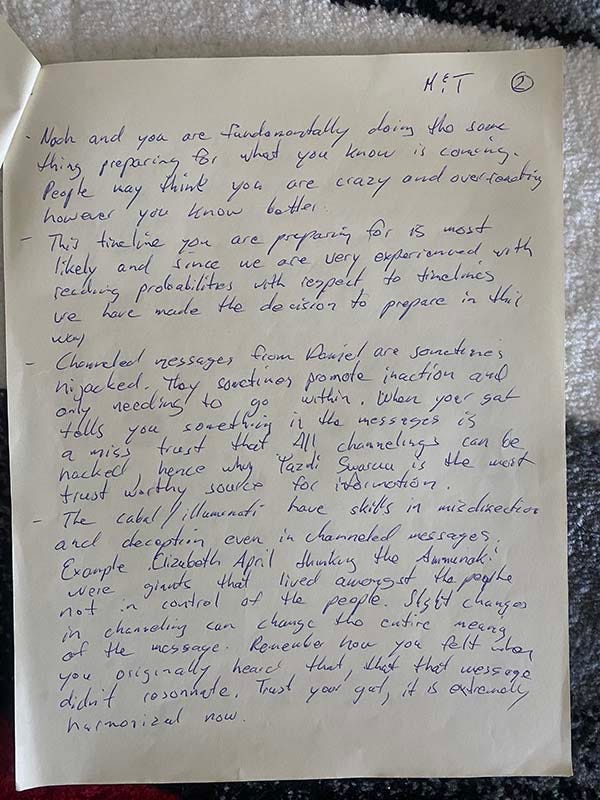 M&T ②
- Noah and you are fundamentally doing the same
thing preparing for what you know is coming.
People may think you are crazy and overreacting
however you know better.
- This timeline you are preparing for is most
likely and since we are very experienced with
reading probabilities with respect to timelines
we have made the decision to prepare in this
way
- Channeled messages from Daniel are sometimes
hijacked. They sometimes promote inaction and
only needing to go within. When your gut
tells you something in the messages is
a miss trust that. All channelings can be
hacked hence why Yazdi Swaruu is the most
trust worthy source for information.
- The cabal/illuminati have skills in misdirection
and deception even in channeled messages.
Example Elizabeth April thinking the Annunaki
were giants that lived amongst the people
not in control of the people. Slight changes
in channeling can change the entire meaning
of the message. Remember how you felt when
you originally heard that, that that message
didn't resonnate. Trust your gut, it is extremely
harmonized now.